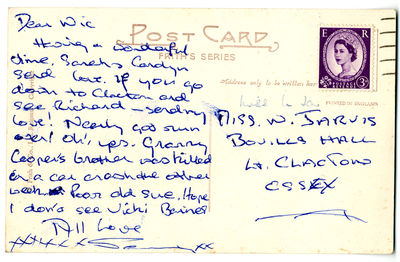 Dear Vic
POST CARD
FRITH'S SERIES
E R
Having a wonderful
time, Sarah & Carolyn
send love. If you go
down to Clacton and
see Richard – send my
love! Nearly got run
over! Oh, yes. Granny
Cooper's brother was killed
in a car crash the other
week. Poor old Sue. Hope
I don't see Vicki Baines
All Love
Address only to be written here
PRINTED IN ENGLAND
MISS. W. JARVIS
BOVILLS HALL
LT. CLACTON
ESSEX